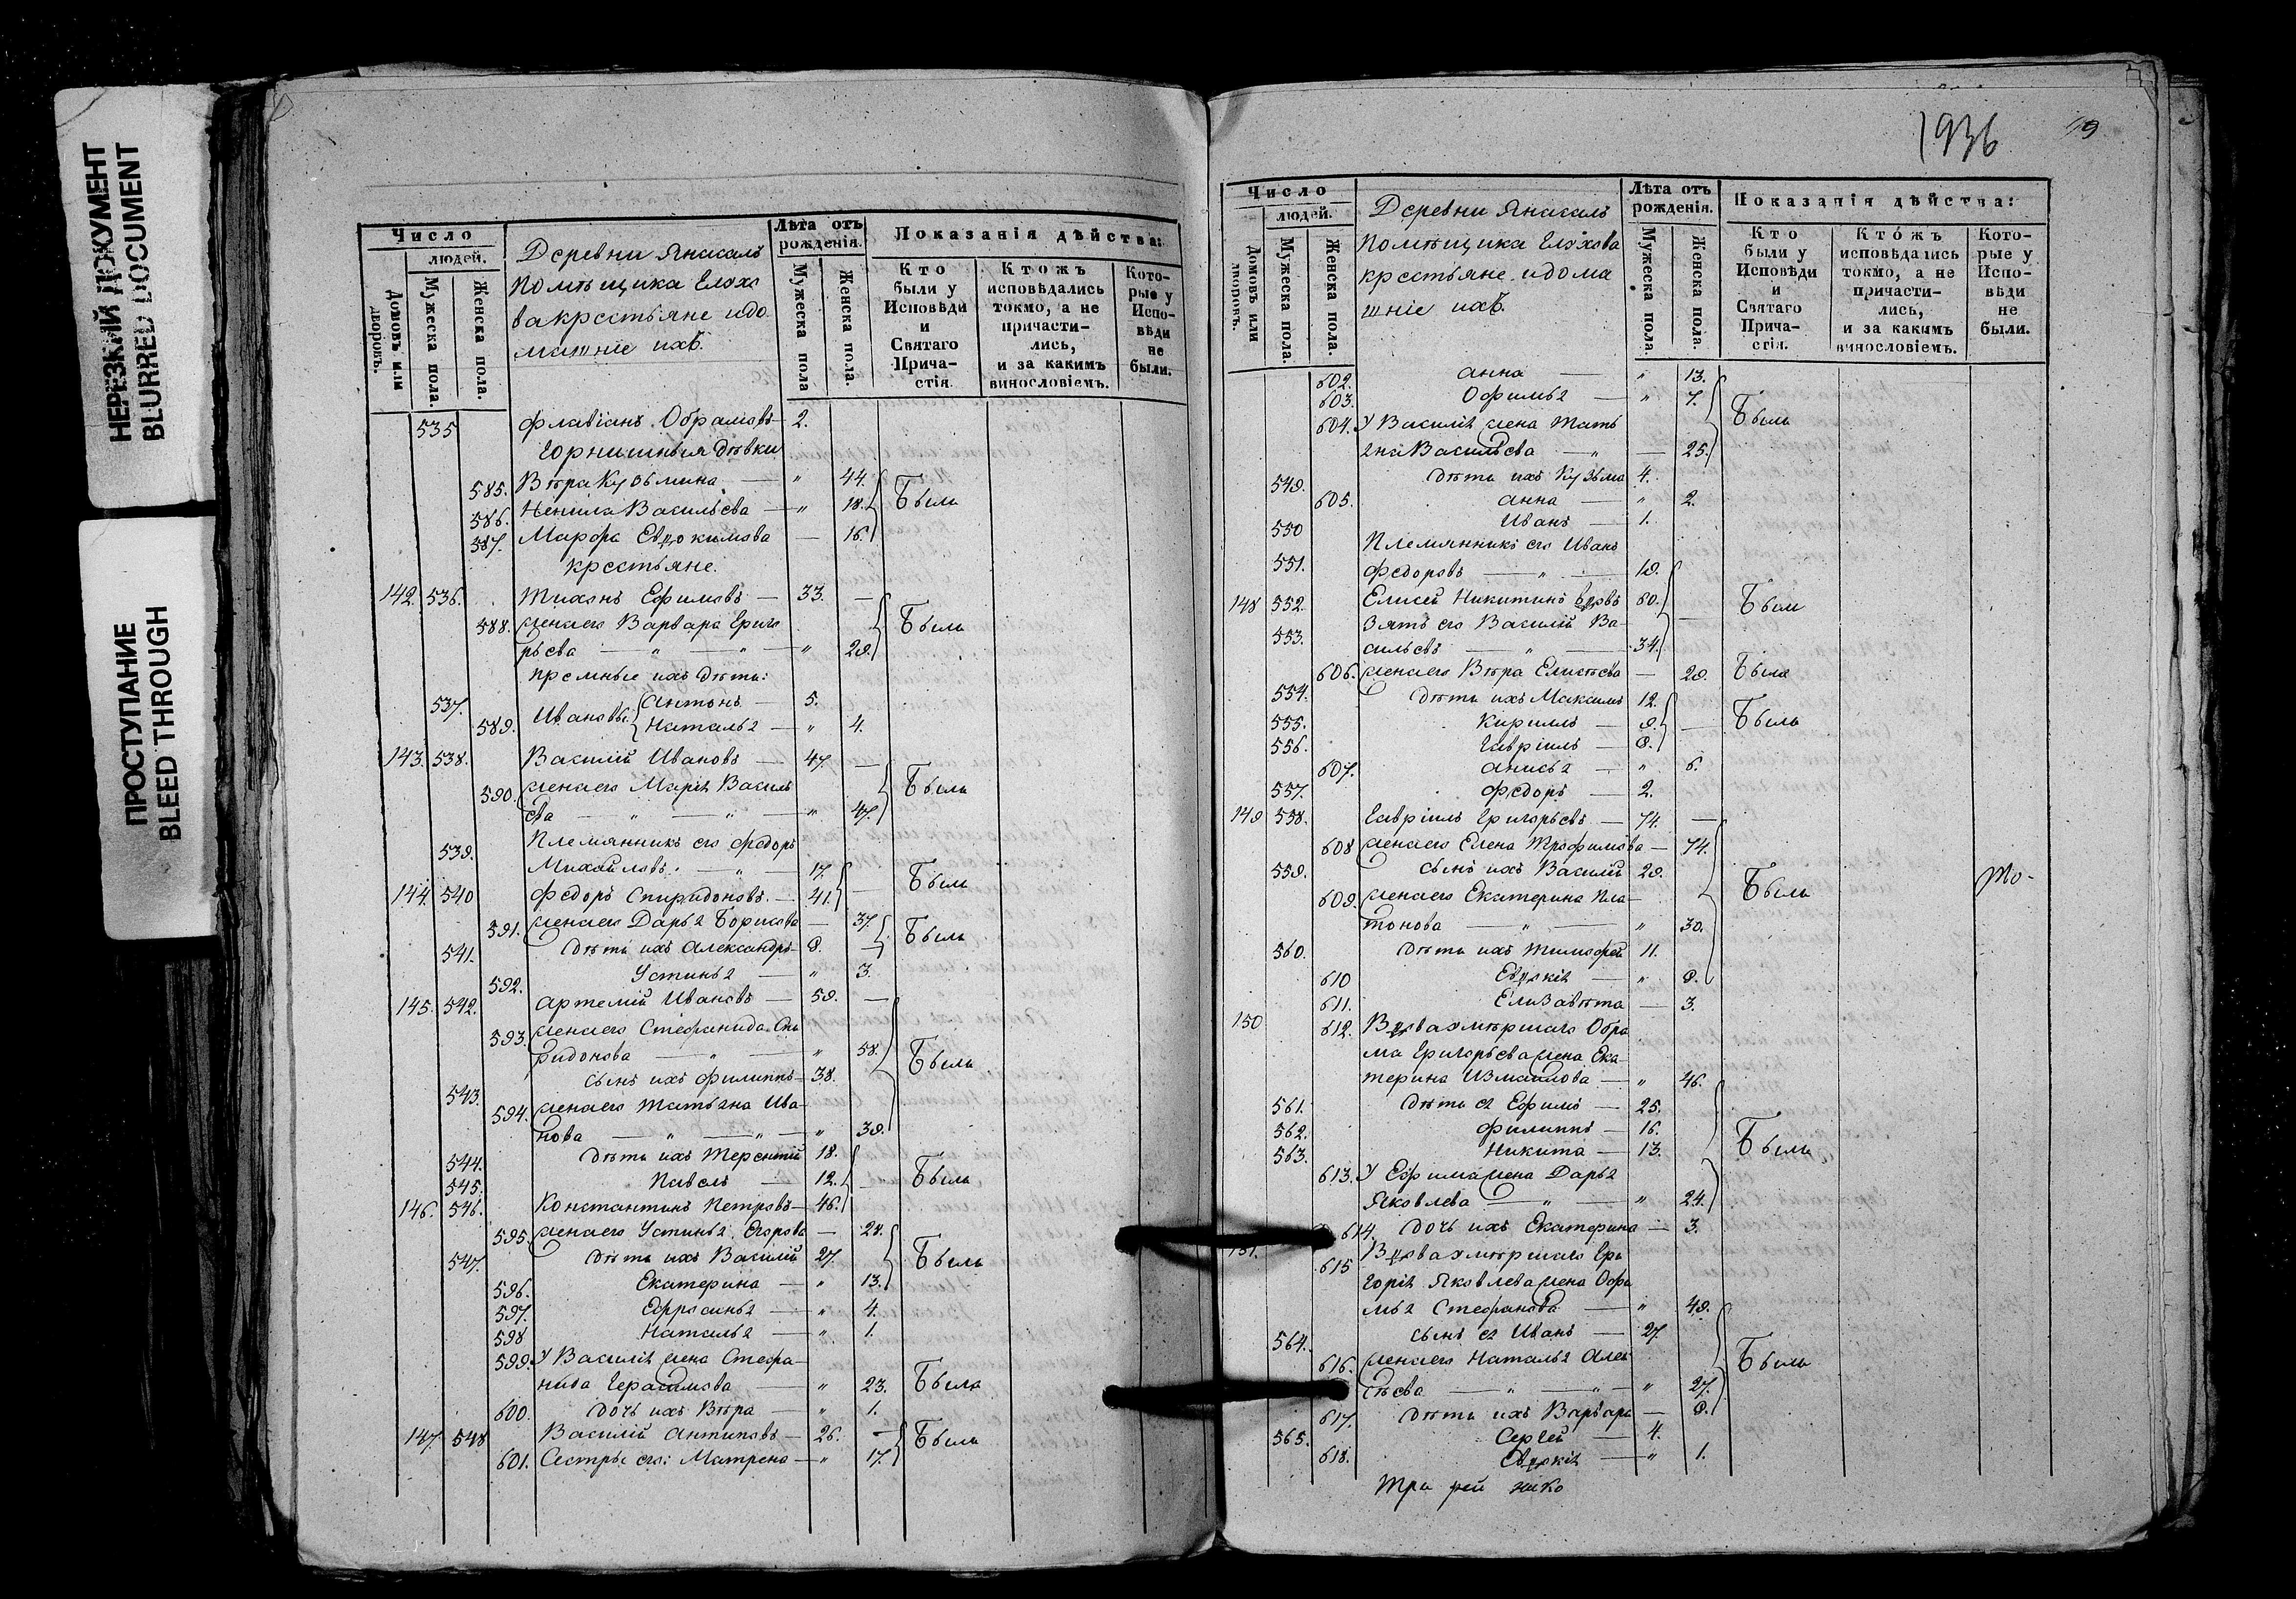 НЕРЕЗКИЙ ДОКУМЕНТ
BLURRED DOCUMENT
ПРОСТУПАНИЕ
BLEED THROUGH
Число
людей.
Домовъ или дворовъ.
Мужеска пола.
Женска пола.
Деревни Янасалъ
Помѣщика Елохо
ва крестьяне и до
машніе ихъ.
Лѣта отъ рожденія.
Мужеска пола
Женска пола.
Показанія дѣйства:
Кто были у Исповѣди и Святаго Прича- стія.
Ктожъ исповѣдались токмо, а не причасти- лись, и за какимъ винословіемъ.
Кото- рые у Испо- вѣди не были.
535 Флавіанъ Обрамовъ 2.
Горнишныя дѣвки
585. Вѣра Кузьмина — " 44.
586. Ненила Васильева — " 18. Были
587. Марфа Евдокимова — 16.
крестьяне.
142. 536. Тихонъ Ефимовъ — 33. —
588. жена его Варвара Григо Были
рьева — " — " — " 29.
премные ихъ дѣти:
537. Ивановы: Антонъ — 5.
589. Наталья — " 4.
143. 538. Василій Ивановъ — 47. —
590. жена его Марія Василь Были
ева — " — " — " 47.
539. Племянникъ его Федоръ
Михайловъ. — " — 17.
144. 540 Федоръ Спиридоновъ. — 41. — Были
591. жена его Дарья Борисова — 37.
541. дѣти ихъ Александръ 8. — Были
592. Устинья — " 3.
145. 542. Артемій Ивановъ — 59. —
593. жена его Стефанида Спи
ридонова — " — " 58. Были
543. сынъ ихъ Филиппъ 38.
594. жена его Татьяна Ива-
нова — " — " — " 39.
544. дѣти ихъ Терентій 18.
545. Павелъ — 12. — Были
146. 546. Константинъ Петровъ 46.
595. жена его Устинья Егорова — 24.
547. дѣти ихъ Василій 27. Были
596. Екатерина — " 13.
597. Ефросинья — " 4.
598 Наталья — " 1.
599. У Василія жена Стефа-
нида Герасимова — " 23. Была
600. дочь ихъ Вѣра — " 1.
147. 548 Василій Антиповъ — 26. — Были
601. Сестры его: Матрена — " 17.
1936
Число
людей.
Домовъ или дворовъ.
Мужеска пола.
Женска пола.
Деревни Янасалъ
Помѣщика Елохова
крестьяне и дома
шніе ихъ.
Лѣта отъ рожденія.
Мужеска пола.
Женска пола.
Показанія дѣйства:
Кто были у Исповѣди и Святаго Прича- стія.
Ктожъ исповѣдались токмо, а не причасти- лись, и за какимъ винословіемъ.
Кото- рые у Испо- вѣди не были.
602. Анна — " 13.
603. Офимья — " 7.
604. У Василія жена Тать Были
яна Васильева — " — 25.
549. дѣти ихъ Кузьма 4.
605. Анна — " 2.
550 Иванъ — 1.
Племянникъ его Иванъ
551. Федоровъ — " — 19.
148 552. Елисей Никитинъ вдовъ 60. — Были
553. Зять его Василій Ва-
сильевъ — " — 34.
606. жена его Вѣра Елисеева — 29. Была
554. дѣти ихъ Максимъ 12.
555. Кириллъ — 9. — Были
556. Гавріилъ — 8.
607. Анисья — " 6.
557. Федоръ — 2.
149 558. Гавріилъ Григорьевъ — 74. —
608 жена его Елена Трофимова — 74.
559. сынъ ихъ Василій 29. Были То-
609. жена его Екатерина Пла-
тонова — " — " 30.
560. дѣти ихъ Тимофей 11.
610 Евдокія — " 8.
611. Елизавѣта — 3.
150 612. Вдова умѣршаго Обра
ма Григорьева жена Ека-
терина Измайлова — " 46.
561. дѣти ея Ефимъ — 25.
562. Филиппъ — 16.
563. Никита — 13. Были
613. У Ефима жена Дарья
Яковлева — " — " 24.
614. дочь ихъ Екатерина — 3.
151. 615 Вдова умѣршаго Гри
горія Яковлева жена Офи
мья Стефанова — " 49.
564. сынъ ея Иванъ — 27
616. жена его Наталья Алек Были
сѣева — " — " — " 27.
617. дѣти ихъ Варвара — 8.
565. Сергей — 4.
618. Евдокія — " 1.